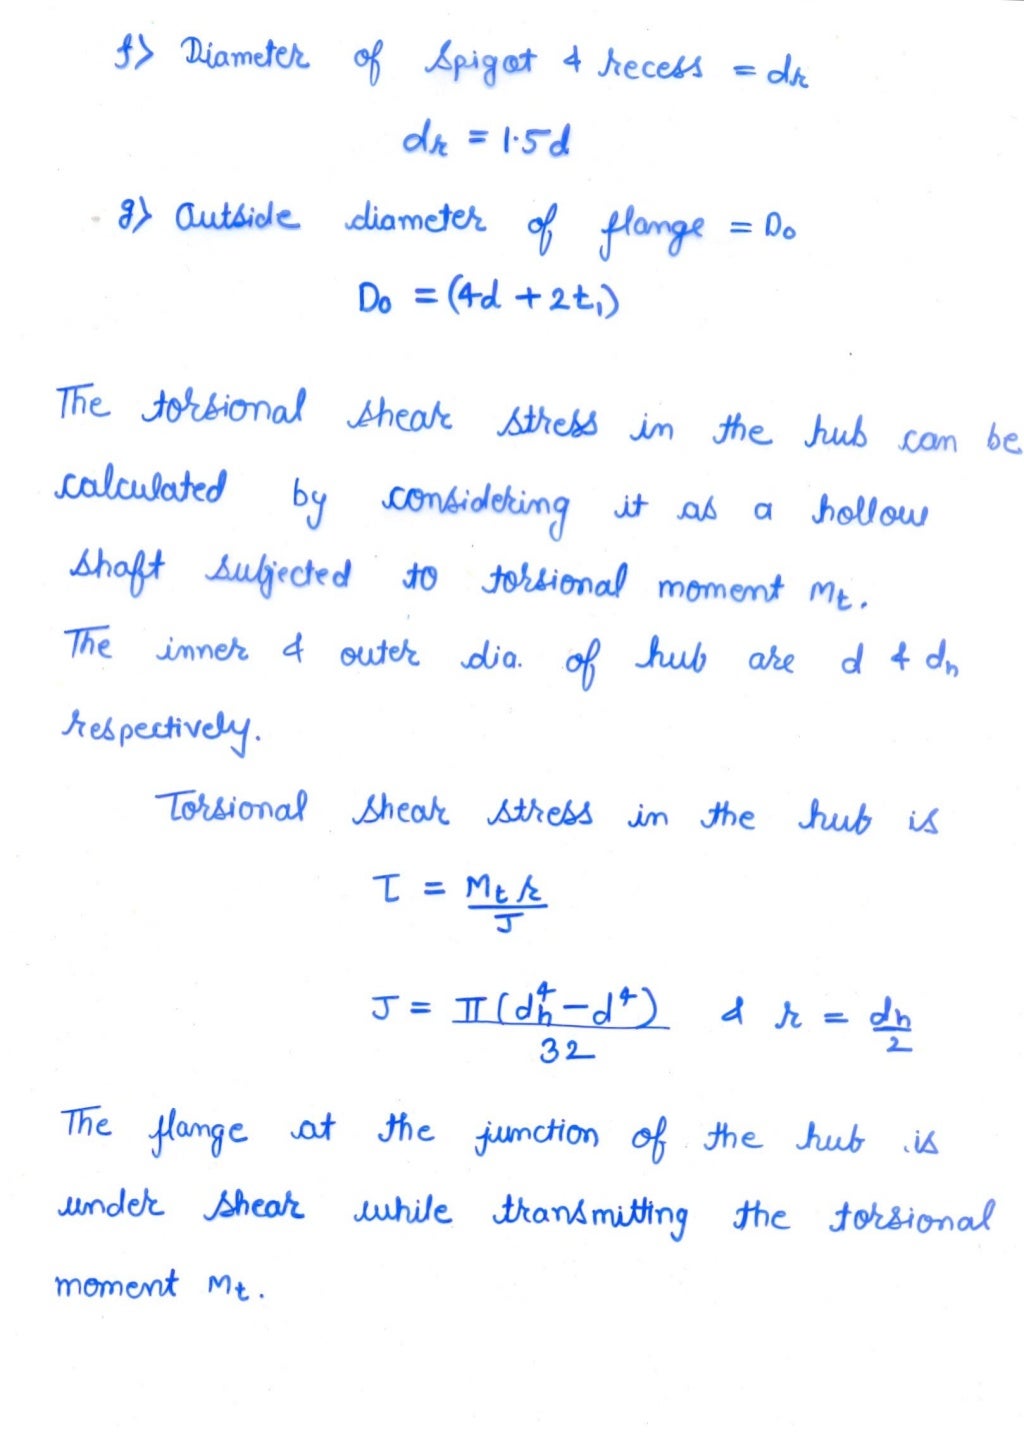 f> Diameter of spigot & recess = dr
dr = 1.5d
g> Outside diameter of flange = Do
Do = (4d + 2t₁)
The torsional shear stress in the hub can be
calculated by considering it as a hollow
shaft subjected to torsional moment Mt.
The inner & outer dia. of hub are d & dh
respectively.
Torsional shear stress in the hub is
τ = Mt r / J
J = π(dh⁴ - d⁴) / 32 & r = dh / 2
The flange at the junction of the hub is
under shear while transmitting the torsional
moment Mt.